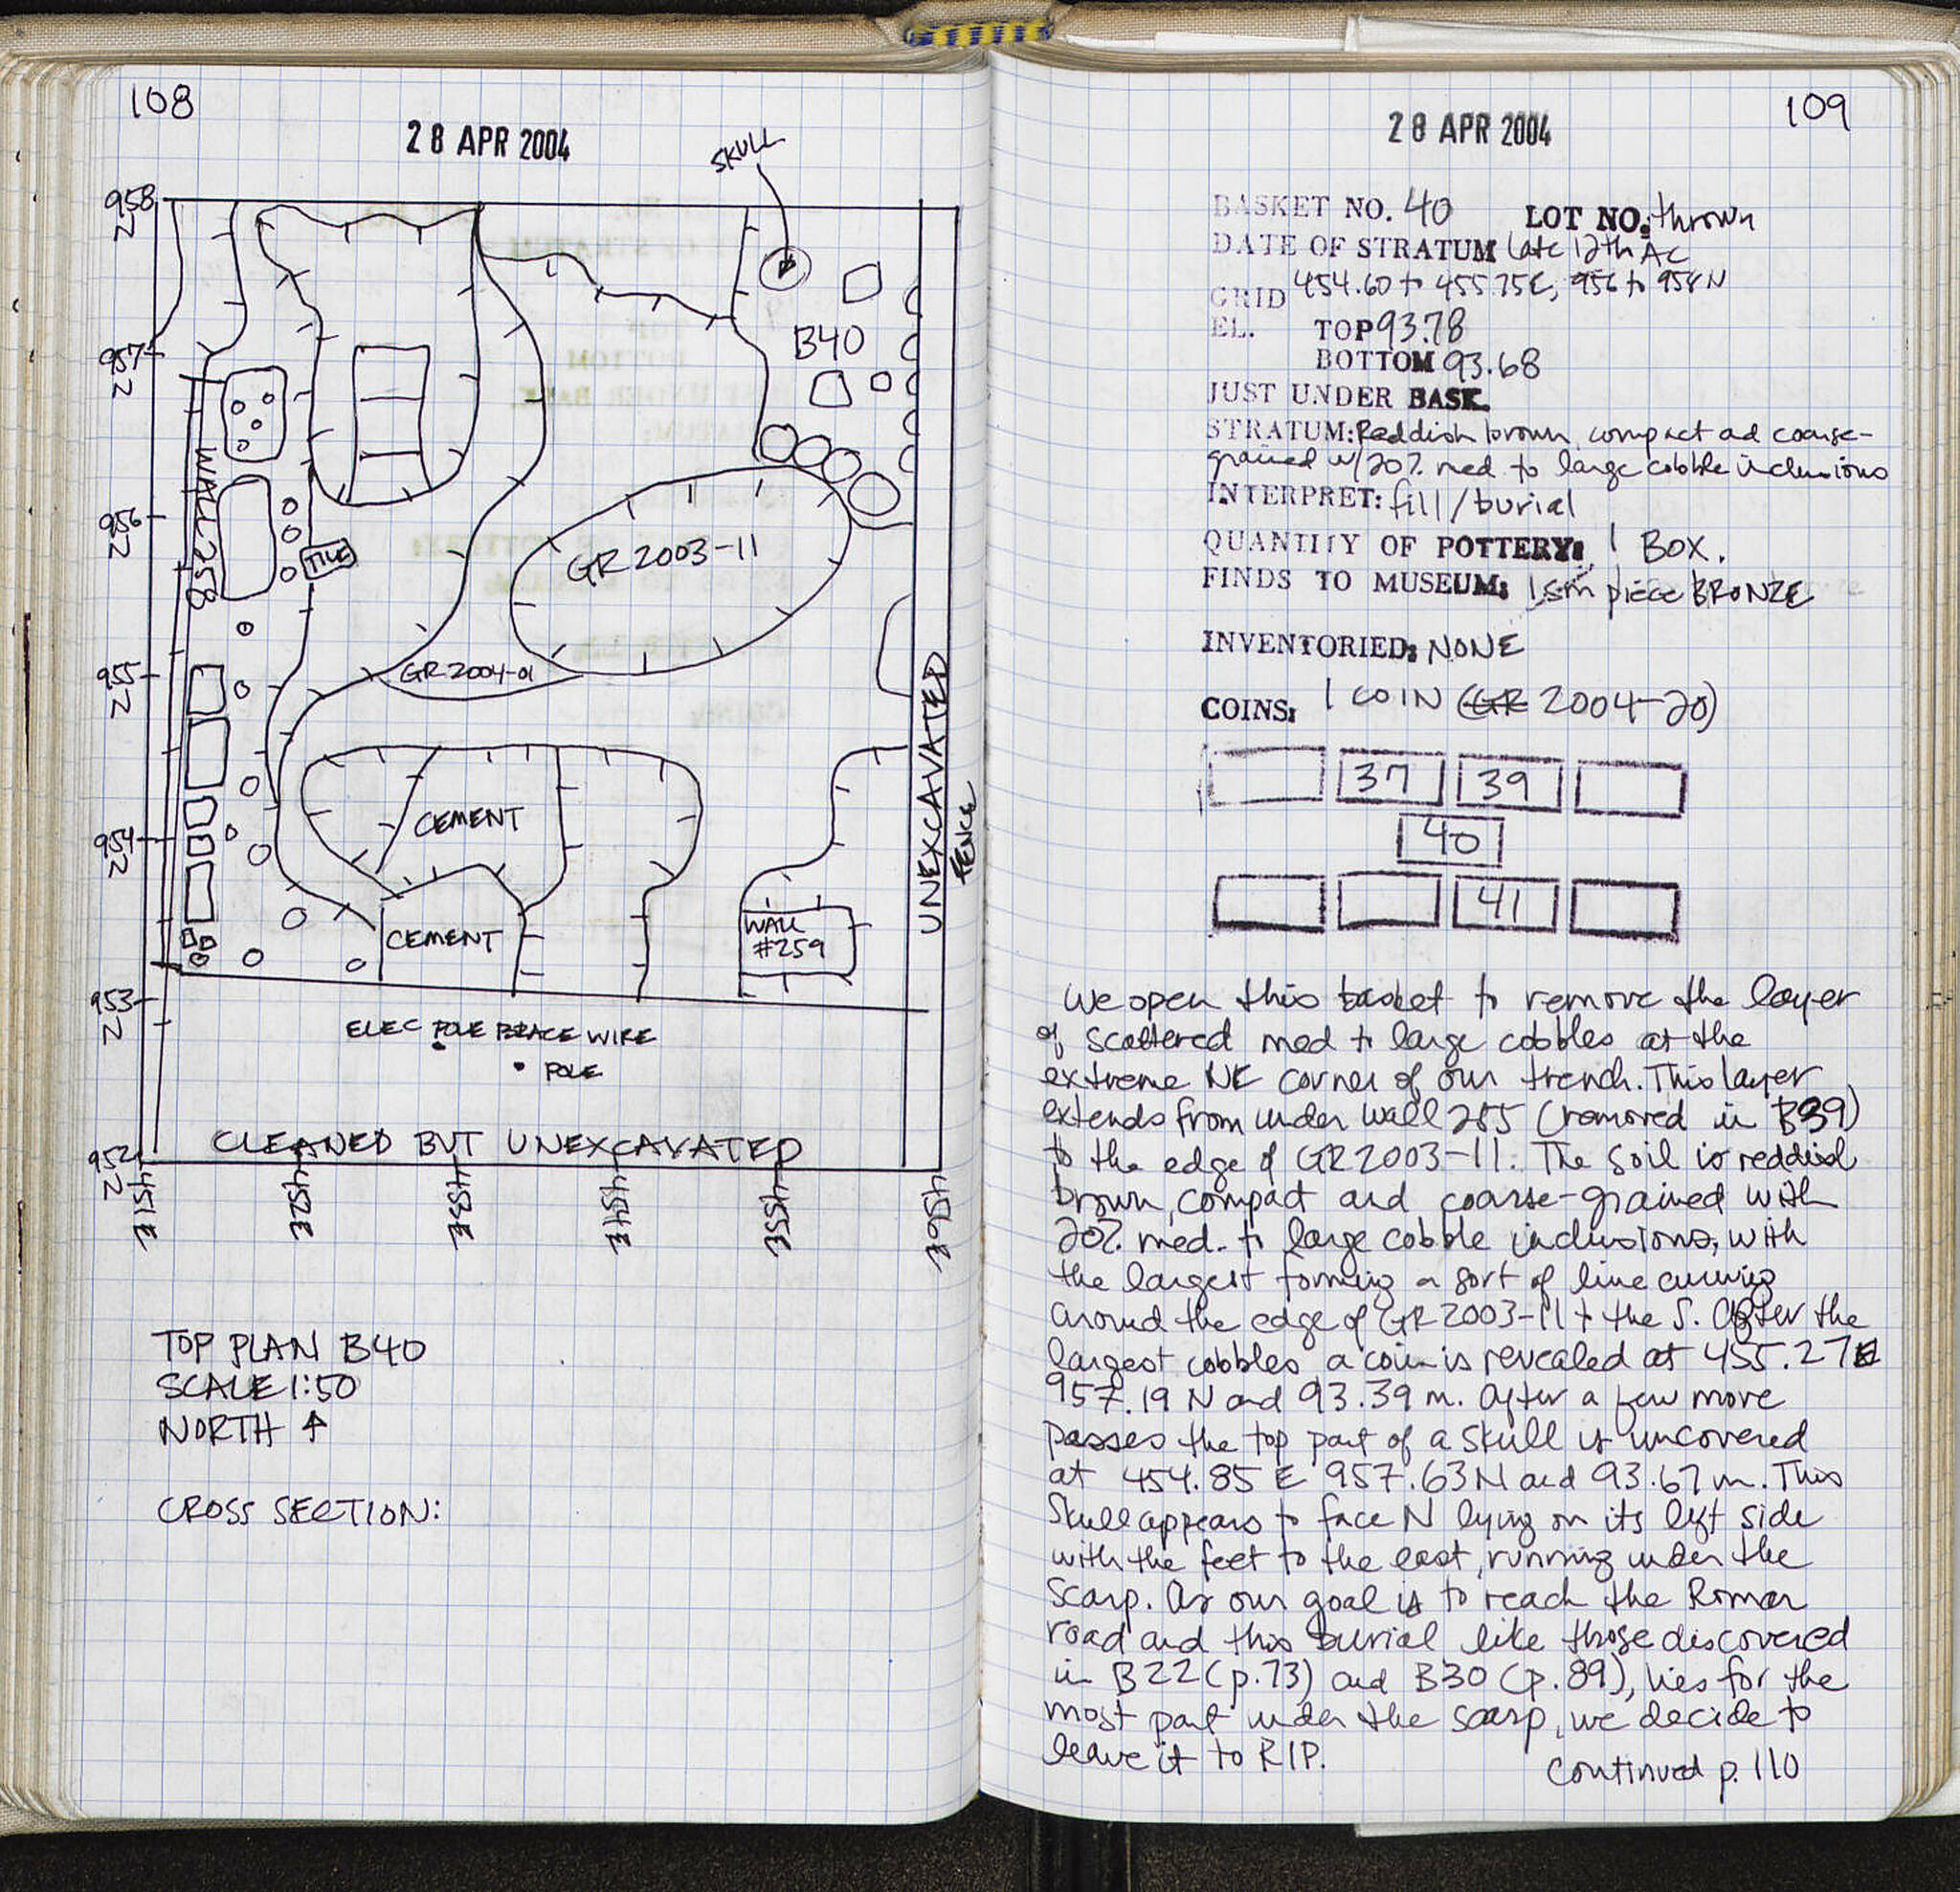 108
28 APR 2004
SKULL
958
N
957
N
B40
WALL 258
956
N
TILE
GR 2003-11
955
N
GR 2004-01
UNEXCAVATED
FENCE
954
N
CEMENT
CEMENT
WALL
#259
953
N
ELEC POLE BRACE WIRE
POLE
CLEANED BUT UNEXCAVATED
952
N
451E
452E
453E
454E
455E
456E
TOP PLAN B40
SCALE 1:50
NORTH ↑
CROSS SECTION:
109
28 APR 2004
BASKET NO. 40 LOT NO. thrown
DATE OF STRATUM late 12th AC
GRID 454.60 to 455.75E, 956 to 958N
EL. TOP 93.78
BOTTOM 93.68
JUST UNDER BASK.
STRATUM: Reddish brown, compact ad coarse-
grained w/20% med to large cobble inclusions
INTERPRET: fill/burial
QUANTITY OF POTTERY: 1 BOX.
FINDS TO MUSEUM: 1 sm piece BRONZE
INVENTORIED: NONE
COINS: 1 COIN (GR 2004-20)
37 39
40
41
We open this basket to remove the layer
of scattered med to large cobbles at the
extreme NE corner of our trench. This layer
extends from under wall 255 (removed in B39)
to the edge of GR 2003-11. The soil is reddish
brown, compact and coarse-grained with
20% med. to large cobble inclusions, with
the largest forming a sort of line curving
around the edge of GR 2003-11 to the S. After the
largest cobbles a coin is revealed at 455.27E
957.19 N and 93.39 m. After a few more
passes the top part of a skull is uncovered
at 454.85 E 957.63 N and 93.67 m. This
skull appears to face N lying on its left side
with the feet to the east, running under the
scarp. As our goal is to reach the Roman
road and this burial like those discovered
in B22 (p.73) and B30 (p.89), lies for the
most part under the scarp, we decide to
leave it to RIP.
continued p. 110